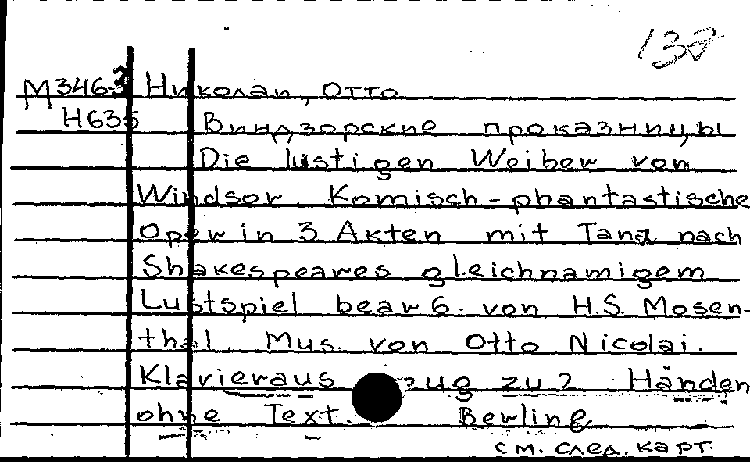 132
М3463 Николаи, Отто
Н635 Виндзорские проказницы
Die lustigen Weiber von
Windsor Komisch-phantastische
Oper in 3 Akten mit Tanz nach
Shakespeares gleichnamigem
Lustspiel bearb. von H.S. Mosen-
thal. Mus. von Otto Nicolai.
Klavieraus zug zu 2 Händen
ohne Text. Berling
см. след. карт.